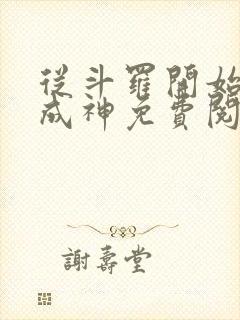 從斗羅開始
成神免費閱
謝壽堂